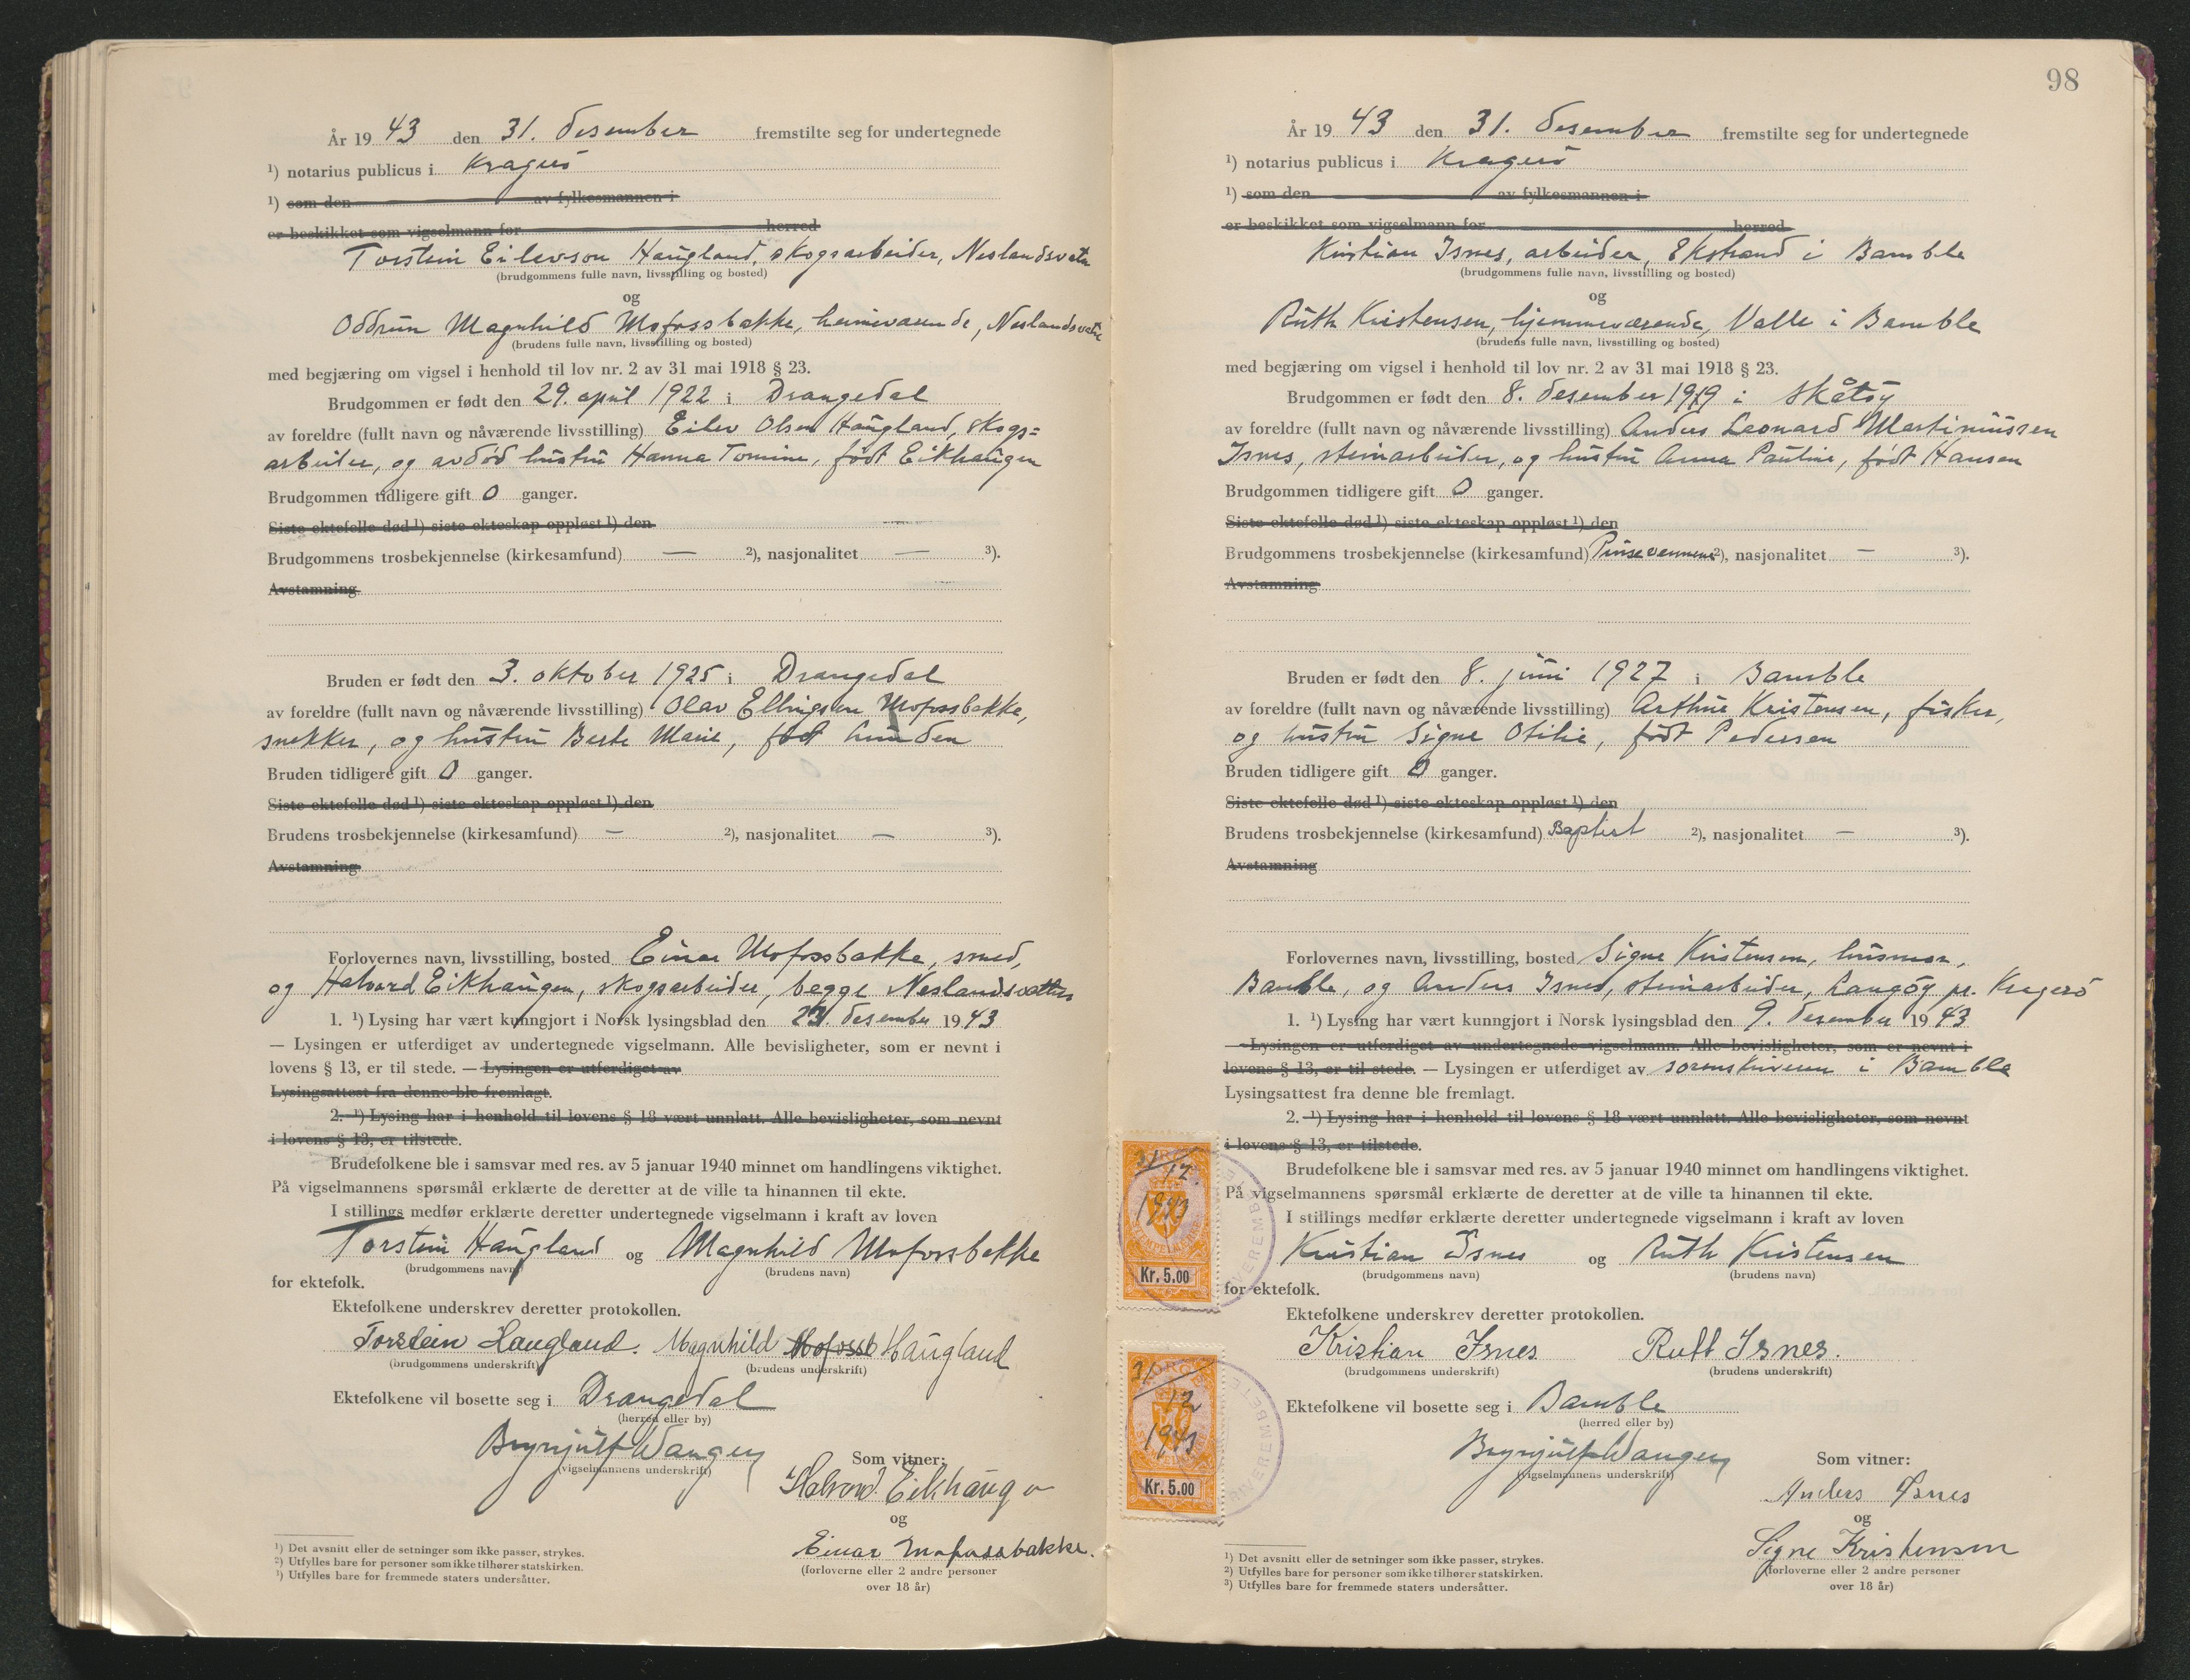 År 19 43 den 31. desember fremstilte seg for undertegnede
¹) notarius publicus i Kragerö
¹) som den av fylkesmannen i
er beskikket som vigselmann for herred
Torstein Eilevson Haugland, skogsarbeider, Neslandsvatn
(brudgommens fulle navn, livsstilling og bosted)
og
Oddrun Magnhild Mofossbakke, heimeværende, Neslandsvatn
(brudens fulle navn, livsstilling og bosted)
med begjæring om vigsel i henhold til lov nr. 2 av 31 mai 1918 § 23.
Brudgommen er født den 29. april 1922 i Drangedal
av foreldre (fullt navn og nåværende livsstilling) Eilev Olsen Haugland, skogs=
arbeider, og avdöd hustru Hanna Tomine, födt Eikhaugen
Brudgommen tidligere gift 0 ganger.
Siste ektefelle død ¹) siste ekteskap oppløst ¹) den
Brudgommens trosbekjennelse (kirkesamfund) — ²), nasjonalitet — ³).
Avstamning
Bruden er født den 3. oktober 1925 i Drangedal
av foreldre (fullt navn og nåværende livsstilling) Olav Ellingsen Mofossbakke,
snekker, og hustru Berte Marie, födt
Bruden tidligere gift 0 ganger.
Siste ektefelle død ¹) siste ekteskap oppløst ¹) den
Brudens trosbekjennelse (kirkesamfund) — ²), nasjonalitet — ³).
Avstamning
Forlovernes navn, livsstilling, bosted Einar Mofossbakke, smed,
og Halvard Eikhaugen, skogsarbeider, begge Neslandsvatn
1. ¹) Lysing har vært kunngjort i Norsk lysingsblad den desember 19 43
— Lysingen er utferdiget av undertegnede vigselmann. Alle bevisligheter, som er nevnt i
lovens § 13, er til stede. — Lysingen er utferdiget av
Lysingsattest fra denne ble fremlagt.
2. ¹) Lysing har i henhold til lovens § 18 vært unnlatt. Alle bevisligheter, som nevnt
i lovens § 13, er tilstede.
Brudefolkene ble i samsvar med res. av 5 januar 1940 minnet om handlingens viktighet.
På vigselmannens spørsmål erklærte de deretter at de ville ta hinannen til ekte.
I stillings medfør erklærte deretter undertegnede vigselmann i kraft av loven
Torstein Haugland og Magnhild Mofossbakke
(brudgommens navn) (brudens navn)
for ektefolk.
Ektefolkene underskrev deretter protokollen.
Torstein Haugland. Magnhild Mofossb Haugland
(brudgommens underskrift) (brudens underskrift)
Ektefolkene vil bosette seg i Drangedal
(herred eller by)
Brynjulf Wangen
(vigselmannens underskrift)
Som vitner:
Halvard Eikhaugen
og
Einar Mofossbakke.
(forloverne eller 2 andre personer
over 18 år)
¹) Det avsnitt eller de setninger som ikke passer, strykes.
²) Utfylles bare for personer som ikke tilhører statskirken.
³) Utfylles bare for fremmede staters undersåtter.
98
År 19 43 den 31. desember fremstilte seg for undertegnede
¹) notarius publicus i Kragerö
¹) som den av fylkesmannen i
er beskikket som vigselmann for herred
Kristian Isnes, arbeider, Ekstrand i Bamble
(brudgommens fulle navn, livsstilling og bosted)
og
Ruth Kristensen, hjemmeværende, Valle i Bamble
(brudens fulle navn, livsstilling og bosted)
med begjæring om vigsel i henhold til lov nr. 2 av 31 mai 1918 § 23.
Brudgommen er født den 8. desember 1919 i Skåtöy
av foreldre (fullt navn og nåværende livsstilling) Anders Leonard Martiniussen
Isnes, steinarbeider, og hustru Anna Pauline, födt Hansen
Brudgommen tidligere gift 0 ganger.
Siste ektefelle død ¹) siste ekteskap oppløst ¹) den
Brudgommens trosbekjennelse (kirkesamfund) Pinsevennene ²), nasjonalitet — ³).
Avstamning
Bruden er født den 8. juni 1927 i Bamble
av foreldre (fullt navn og nåværende livsstilling) Arthur Kristensen, fisker,
og hustru Signe Otilie, födt Pedersen
Bruden tidligere gift 0 ganger.
Siste ektefelle død ¹) siste ekteskap oppløst ¹) den
Brudens trosbekjennelse (kirkesamfund) Baptist ²), nasjonalitet — ³).
Avstamning
Forlovernes navn, livsstilling, bosted Signe Kristensen, husmor,
Bamble, og Anders Isnes, steinarbeider, Langöy pr. Kragerö
1. ¹) Lysing har vært kunngjort i Norsk lysingsblad den 9. desember 19 43
— Lysingen er utferdiget av undertegnede vigselmann. Alle bevisligheter, som er nevnt i
lovens § 13, er til stede. — Lysingen er utferdiget av sorenskriveren i Bamble
Lysingsattest fra denne ble fremlagt.
2. ¹) Lysing har i henhold til lovens § 18 vært unnlatt. Alle bevisligheter, som nevnt
i lovens § 13, er tilstede.
Brudefolkene ble i samsvar med res. av 5 januar 1940 minnet om handlingens viktighet.
På vigselmannens spørsmål erklærte de deretter at de ville ta hinannen til ekte.
I stillings medfør erklærte deretter undertegnede vigselmann i kraft av loven
Kristian Isnes og Ruth Kristensen
(brudgommens navn) (brudens navn)
for ektefolk.
Ektefolkene underskrev deretter protokollen.
Kristian Isnes Ruth Isnes.
(brudgommens underskrift) (brudens underskrift)
Ektefolkene vil bosette seg i Bamble
(herred eller by)
Brynjulf Wangen
(vigselmannens underskrift)
Som vitner:
Anders Isnes
og
Signe Kristensen
(forloverne eller 2 andre personer
over 18 år)
¹) Det avsnitt eller de setninger som ikke passer, strykes.
²) Utfylles bare for personer som ikke tilhører statskirken.
³) Utfylles bare for fremmede staters undersåtter.
31/12.
1943
Kr. 5.00
31/12
1943
Kr. 5.00